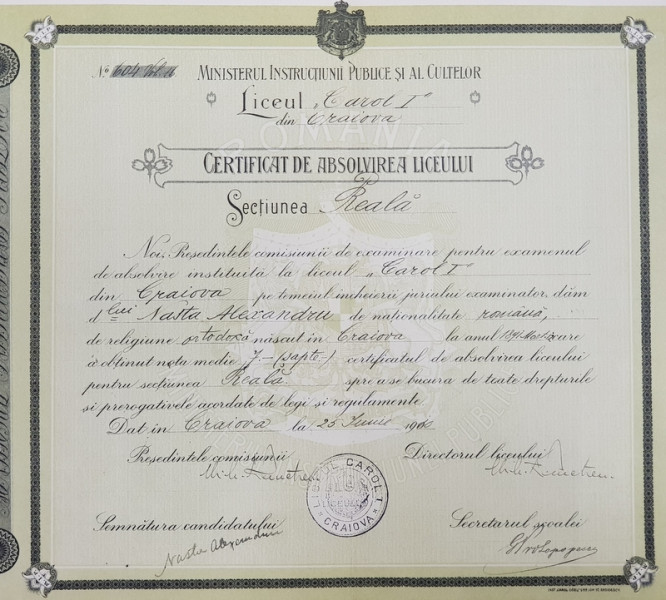 ROMANIA
No
MINISTERUL INSTRUCȚIUNII PUBLICE ȘI AL CULTELOR
Liceul „Carol I"
din Craiova
CERTIFICAT DE ABSOLVIREA LICEULUI
Secțiunea Reală
Noi, Președintele comisiunii de examinare pentru examenul
de absolvire instituită la liceul „Carol I"
din Craiova pe temeiul încheierii juriului examinator, dăm
d lui Nasta Alexandru de naționalitate română,
de religiune ortodoxă născut în Craiova la anul care
a obținut nota medie 7.– (șapte) certificatul de absolvirea liceului
pentru secțiunea Reală spre a se bucura de toate drepturile
și prerogativele acordate de legi și regulamente
Dat în Craiova la 25 Iunie
Președintele comisiunii Directorul liceului
LICEUL CAROL I
CRAIOVA
Semnătura candidatului Secretarul școalei
Nasta Alexandru